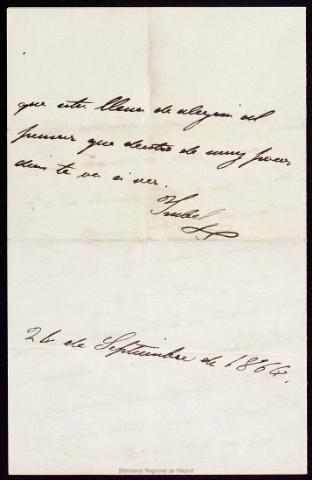 que esta llena de alegria al
pensar que dentro de muy pocos
dias te va a ver.
Isabel
26 de Septiembre de 1864.
Biblioteca Regional de Madrid